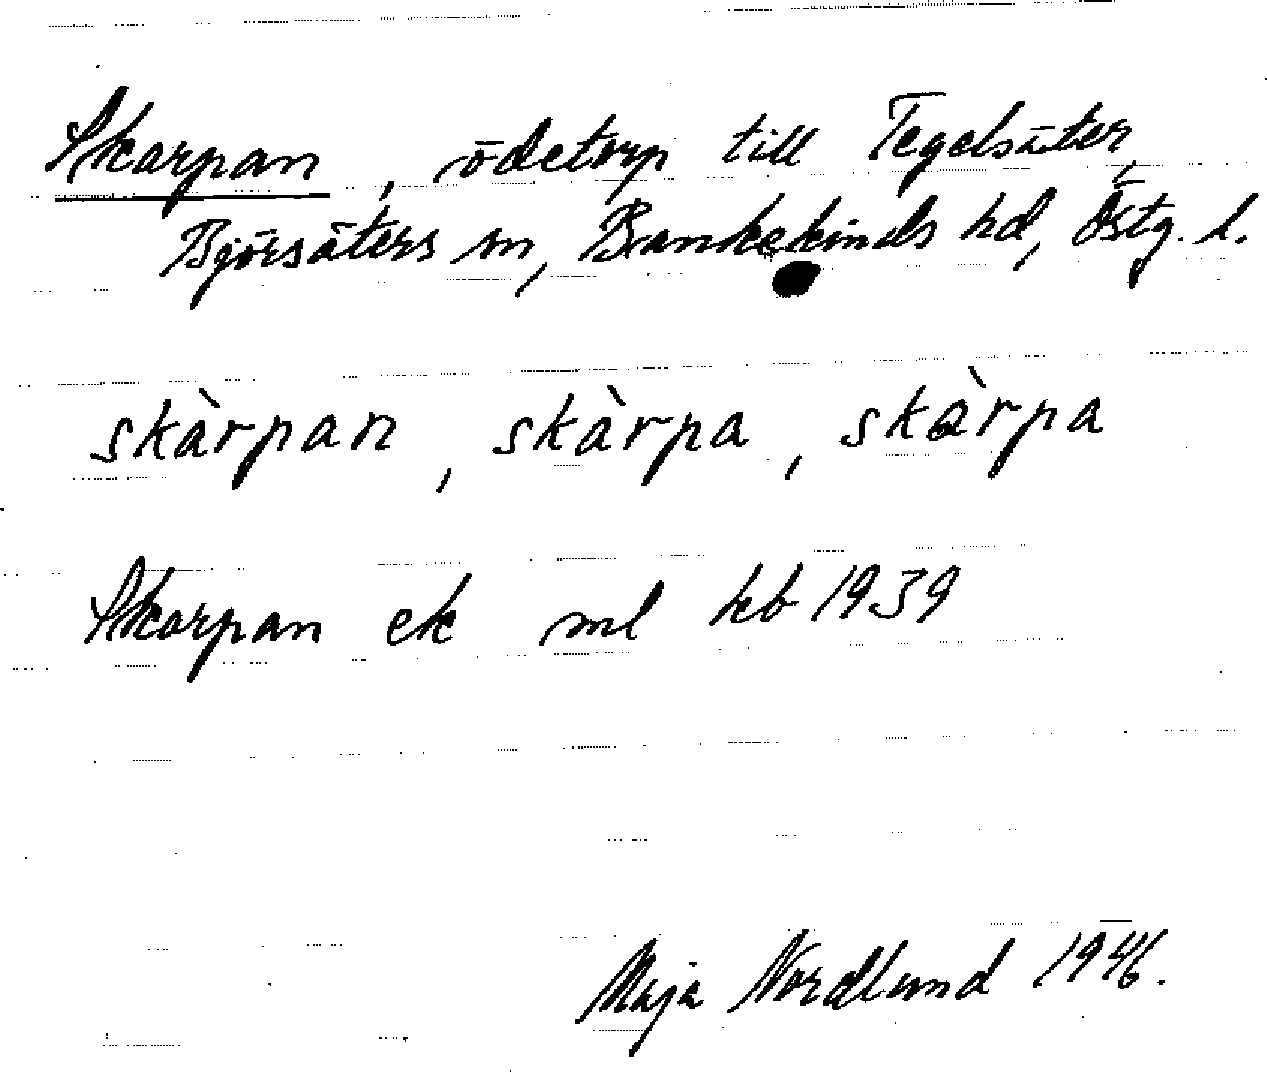 Skarpan, ödetorp till Tegelsäter,
Björsäters sn, Bankekinds hd, Östg. l.
skàrpan, skàrpa, skàrpa
Skarpan ek ml kb 1939
Maja Nordlund 1946.